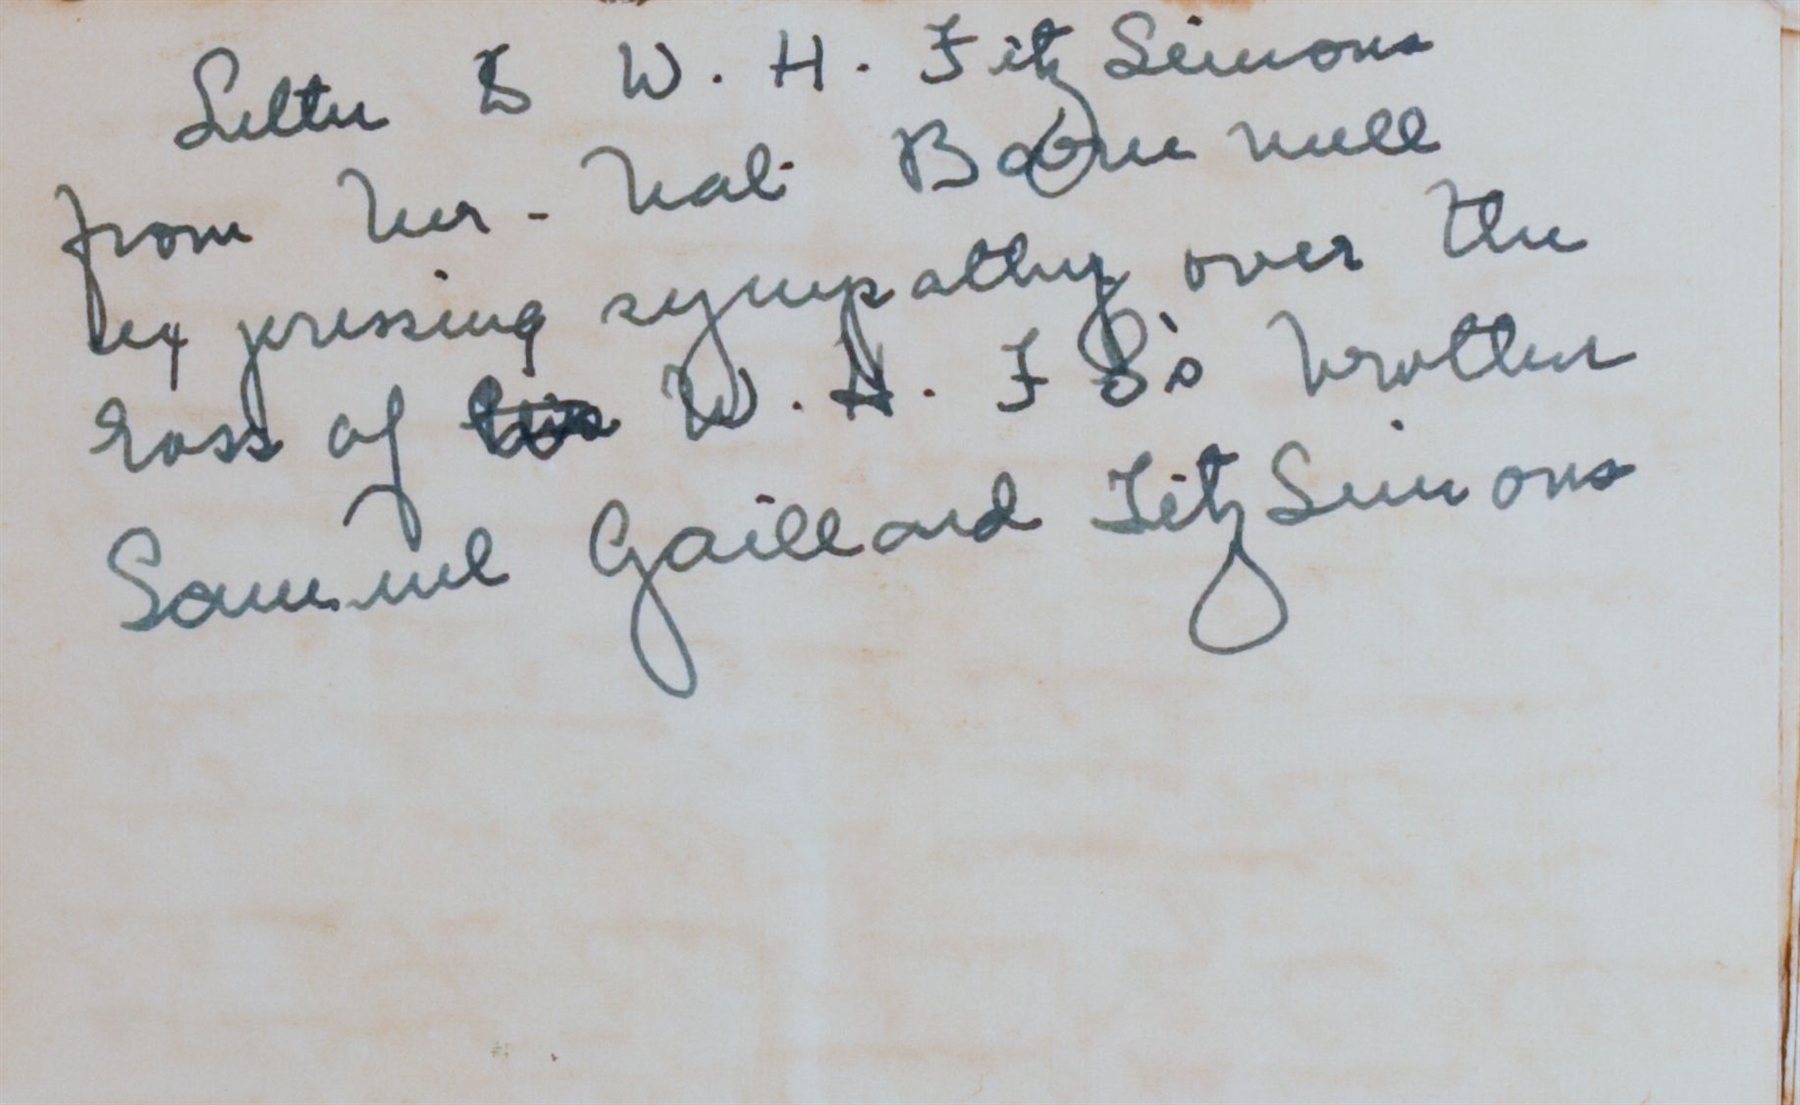 Letter to W. H. FitzSimons
from Mr. Nat Barnwell
expressing sympathy over the
loss of his W. H. F S's brother
Samuel Gaillard FitzSimons